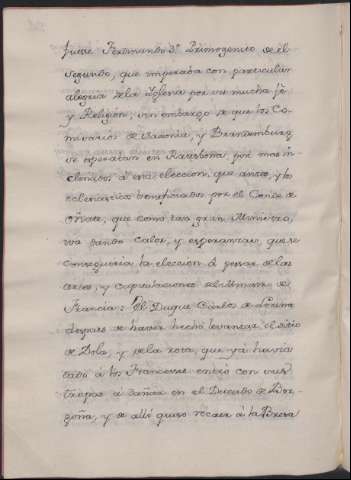 fuese Ferdinando 3º Primogenito de el
segundo, que imperaba con particular
alegria de la Iglesia por su mucha fe
y Religion; sin embargo de que los Co-
misarios de Saxonia, y Brandemburg
se esperaban en Ratisbona, por mas in-
clinados à esta eleccion, que antes, y los
eclesiasticos beneficiados por el Conde de
Oñate, que como tan gran Ministro,
iva dando calor, y esperanzas, que se
conseguiria la eleccion à pesar de las
artes, y capitulaciones de
Francia: El Duque Carlos de Lorena
despues de haver hecho levantar el sitio
de Dola, y de la rota, que ya havia
dado à los Franceses entrò con sus
tropas à dañar en el Ducado de Bor-
goña, y de alli quiso recaer à la Bresa